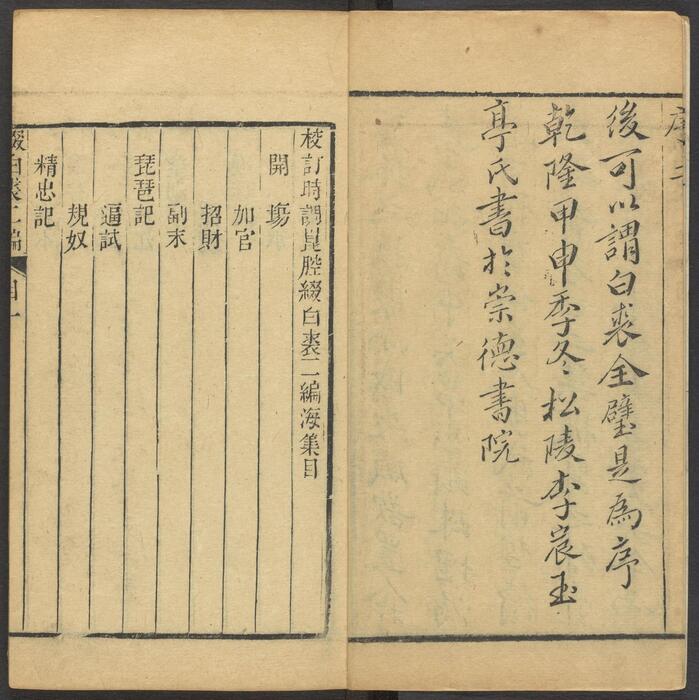 後可以謂白裘全璧是為序
乾隆甲申季冬松陵李宸玉
亭氏書於崇德書院
校訂時調崑腔綴白裘二編海集目
開塲
加官
招財
副末
琵琶記
逼試
規奴
精忠記
綴白裘二編 目一